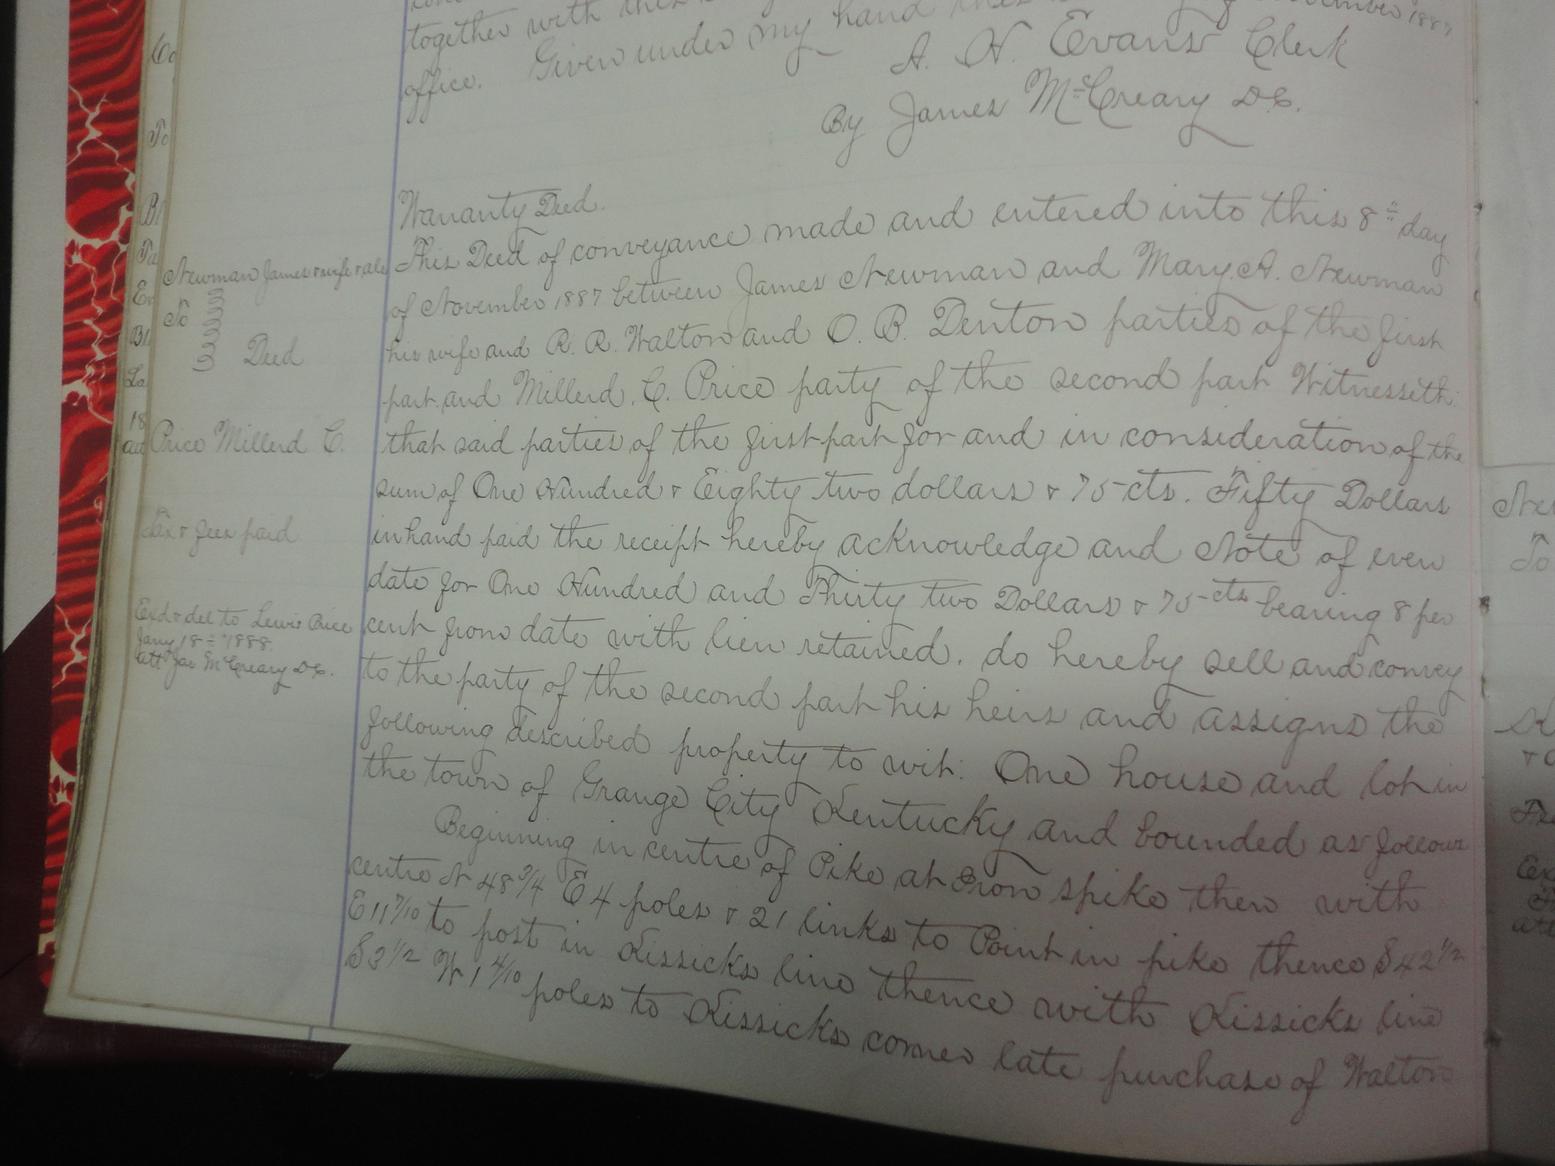 together with this
office. Given under my hand this November 1887
A. H. Evans Clerk
By James McCreary DC.
Warranty Deed.
This Deed of conveyance made and entered into this 8th day
of November 1887 between James Newman and Mary A. Newman
his wife and R. R. Walton and O. B. Denton parties of the first
part, and Millerd. C. Price party of the second part Witnesseth:
that said parties of the first part for and in consideration of the
sum of One Hundred & Eighty two dollars & 75 cts. Fifty Dollars
in hand paid the receipt hereby acknowledge and Note of even
date for One Hundred and Thirty two Dollars & 75 cts bearing 8 per
cent from date with lien retained. do hereby sell and convey
to the party of the second part his heirs and assigns the
following described property to wit: One house and lot in
the town of Grange City Kentucky and bounded as follows
Beginning in centre of Pike at Iron spike then with
centre N 48 3/4 E 4 poles & 21 links to Point in pike thence S 42 1/2
E 11 7/10 to post in Kissicks line thence with Kissicks line
S 3 1/2 W 1 4/10 poles to Kissicks corner late purchase of Walton
Newman James & wife & als
To
Deed
Price Millerd C.
Tax & fees paid
Exd & del to Lewis Price
Jany 18th 1888.
att Jas McCreary DC.
To